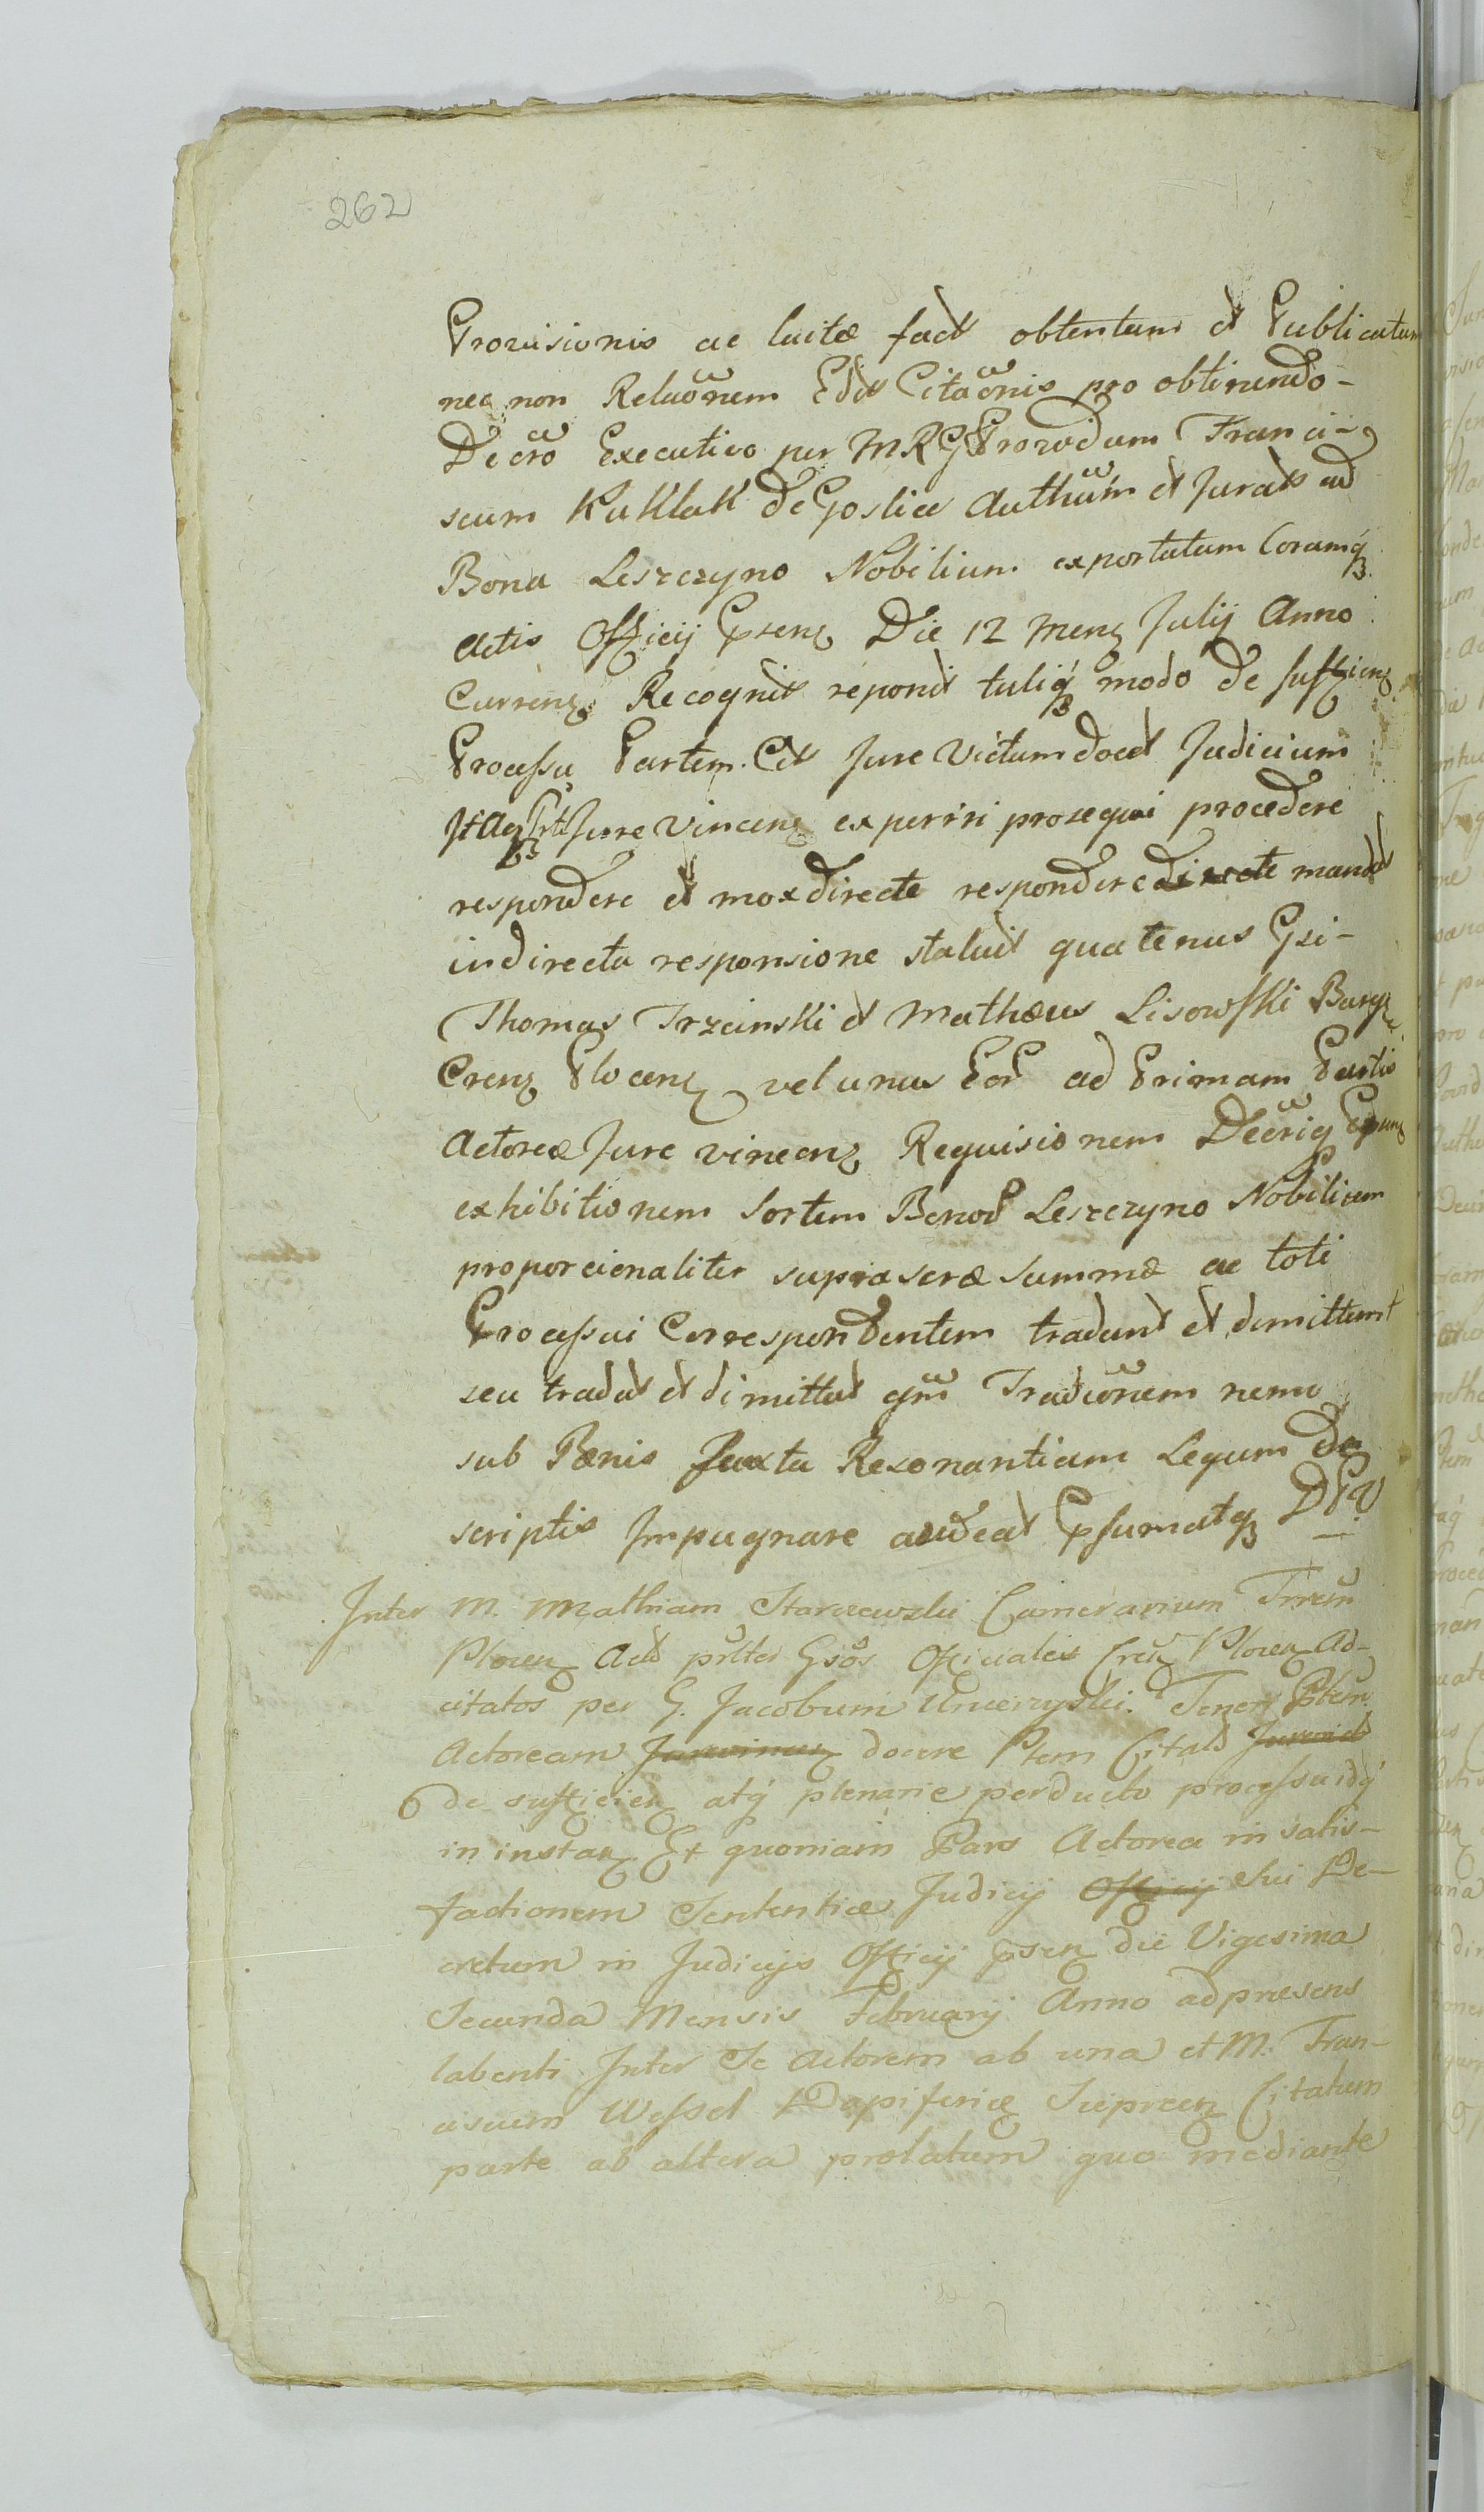 262
Provisionis ac luitæ fact obtentum et Publicatum
nec non Relaõnem Edit Citaõnis pro obtinendo-
Decro Executivo per MRG Providum Franci-
scum Kuklak de Goslice Authum et Jurat ad
Bona Leszczyno Nobilium exportatum Coramq
Actis Officij Psenz Die 12 Menz Julij Anno
Currenz Recognit reponit tuliq modo de sufficienz
Processu Partem Cit Jure Victum docet Judicium
Itaq Prti Jure Vincenz experiri prosequi procedere
respondere et mox directe respondere directe mandat
indirecta responsione statuit quatenus Gsi-
Thomas Trzcinski et Mathæus Lisowski Burgz
Crenz Plocenz vel unus Eor ad Primam Partis
Actoreæ Jure vincenz Requisionem Decriq
exhibitionem Sortem Bonor Leszczyno Nobilium
proporcionaliter suprascræ Summæ ac toti
Processui Correspondentem tradant et dimittant
seu tradat et dimittat qm Tradiõnem nemo
sub Pænis Juxta Resonantiam Legum de
scriptis Impugnare audeat Psumatq DPV
Inter M. Mathiam Starczewski Camerarium Trrem
Plocenz Act prlter Gsos Officiales Cren Plocenz Ad-
citatos per G. Jacobum Tener Ptem
Actoream Jurevincenz docere Ptem Citat Jurevict
6 de sufficienz atq plenarie perducto processu idq
in instanz Et quoniam Pars Actorea in satis-
factionem Sententiæ Judicij Officij sui De-
cretum in Judicijs Officij psenz die Vigesima
Secunda Mensis Februarij Anno ad præsens
labenti Inter Se Actorem ab una et M. Fran-
ciscum Wessel Dapiferiæ Sieprcenz Citatum
parte ab altera prolatum quo mediante